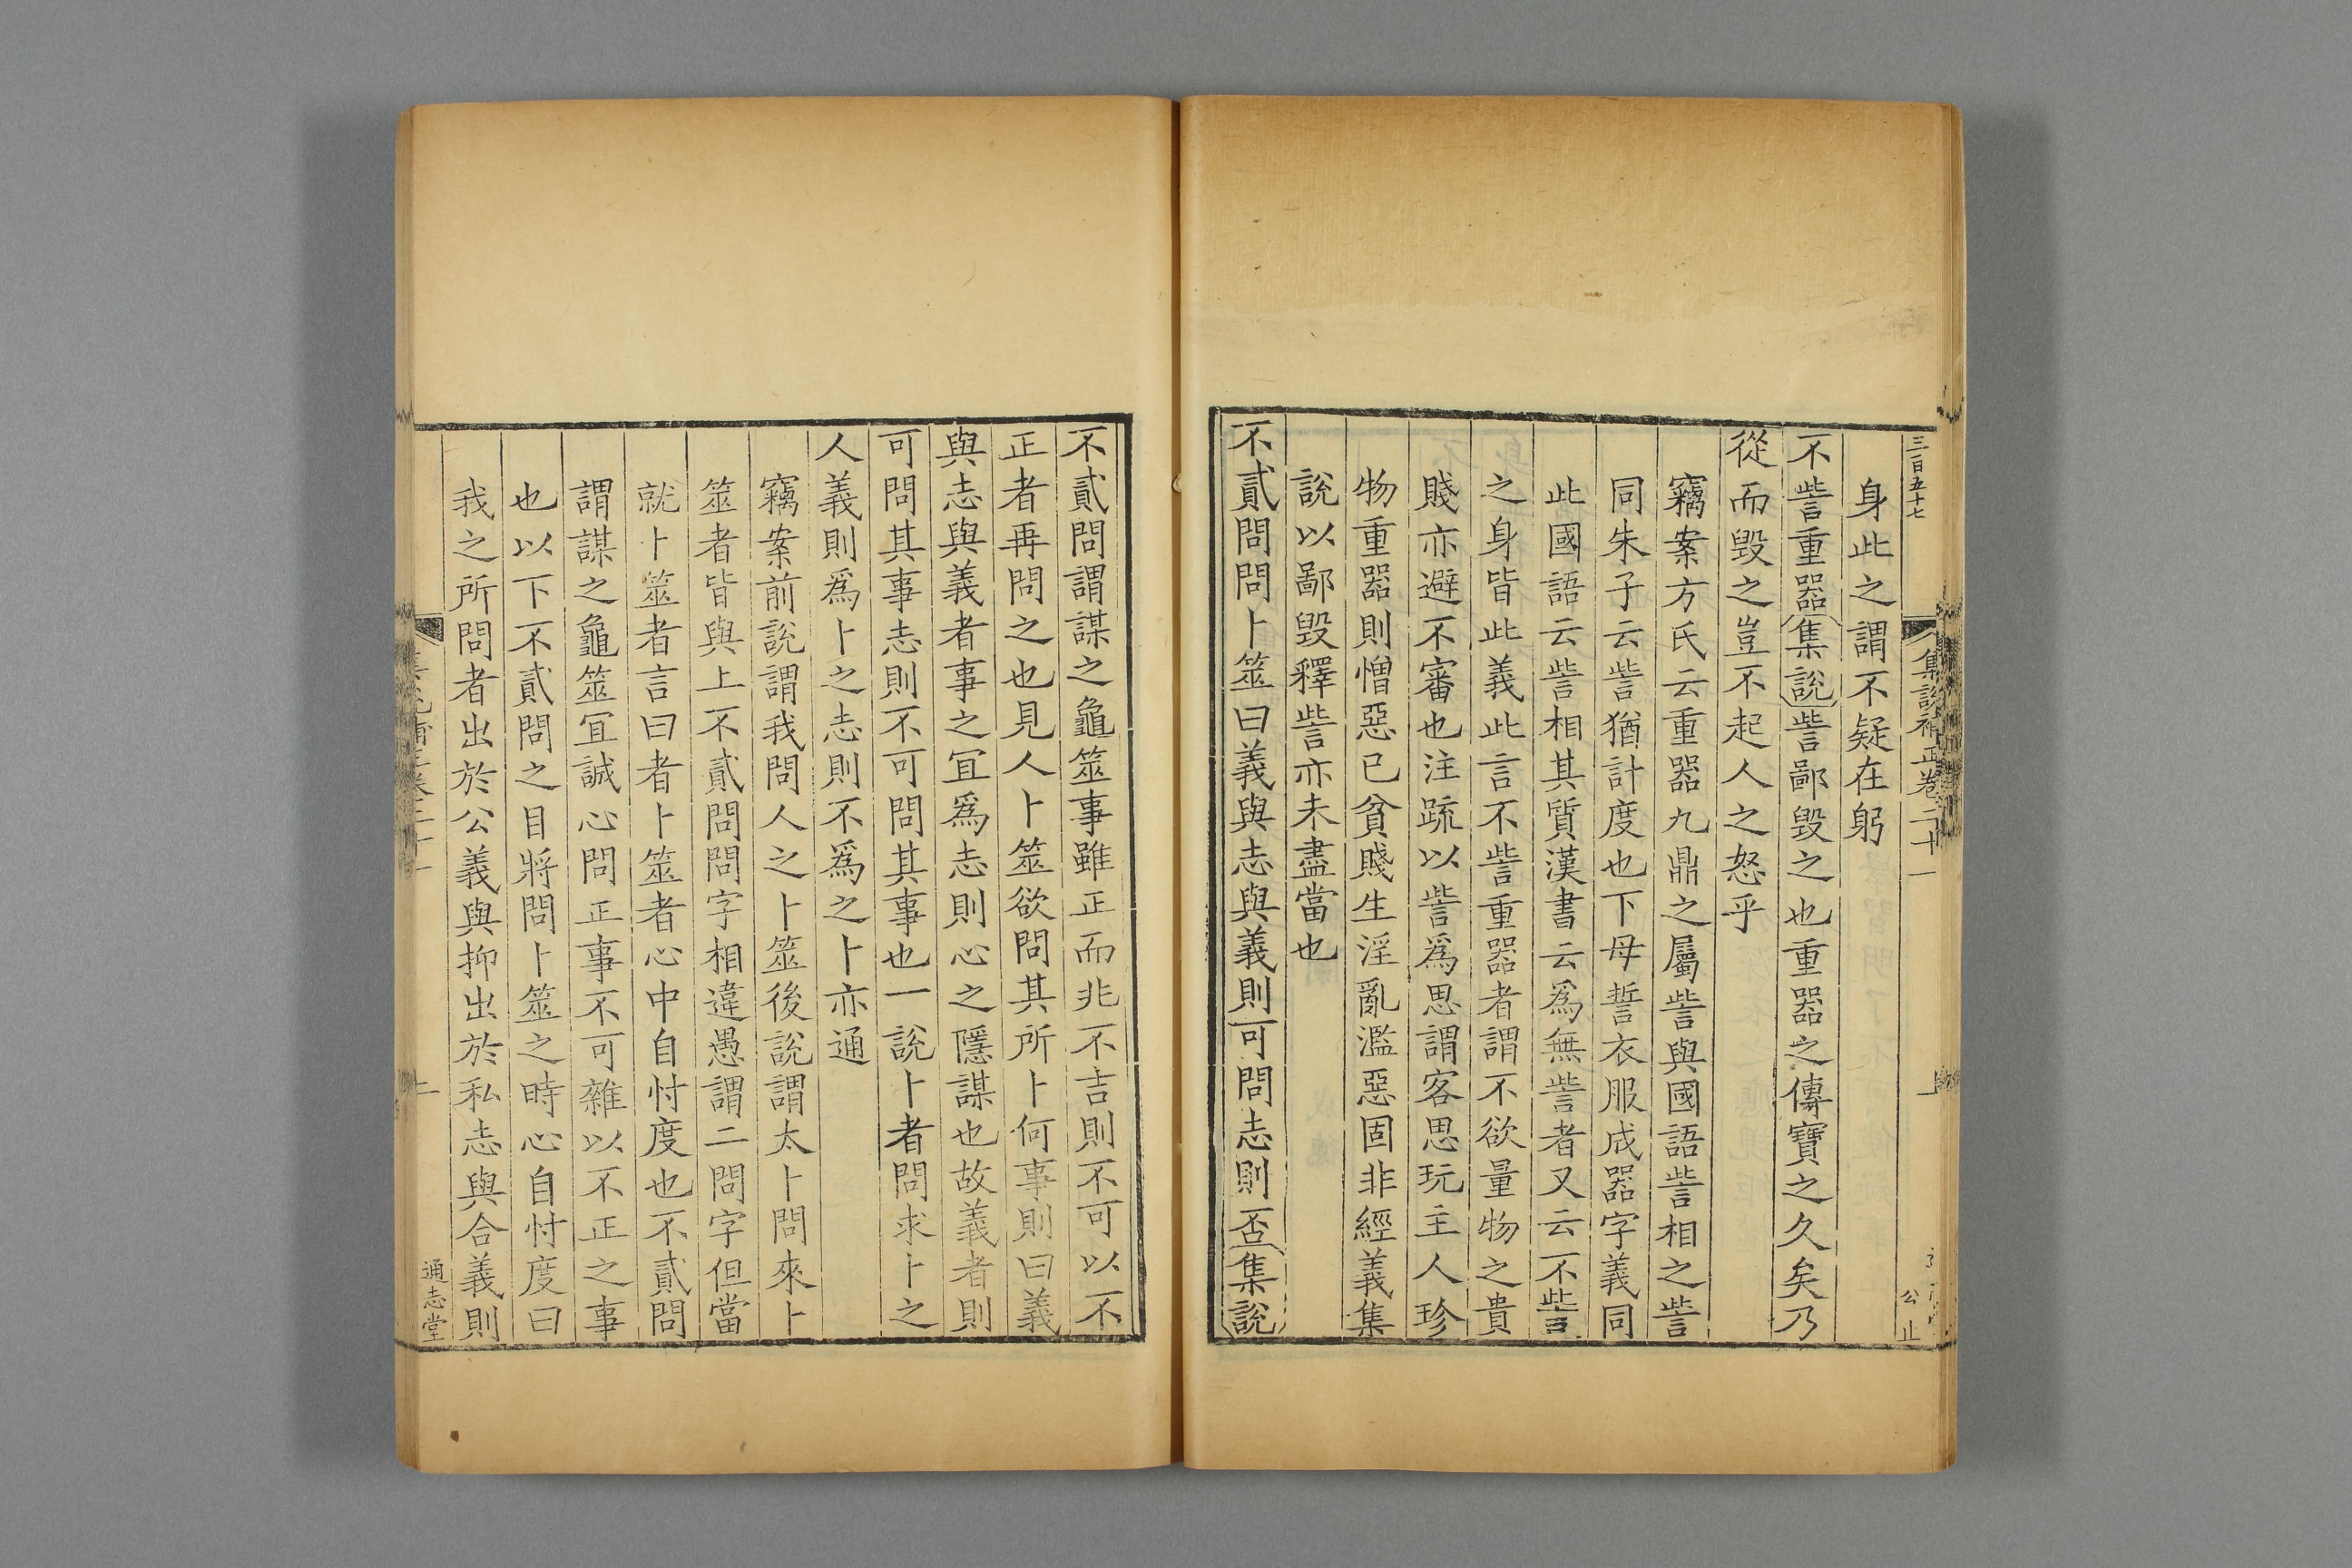 三百五十七
集說補正卷二十一
公止
身此之謂不疑在躬
不訾重器集說訾鄙毀之也重器之傳寶之久矣乃
從而毀之豈不起人之怒乎
竊案方氏云重器九鼎之屬訾與國語訾相之訾
同朱子云訾猶計度也下母誓衣服成器字義同
此國語云訾相其質漢書云為無訾者又云不訾
之身皆此義此言不訾重器者謂不欲量物之貴
賤亦避不審也注䟽以訾爲思謂客思玩主人珍
物重器則憎惡已貧賤生淫亂濫惡固非經義集
說以鄙毀釋訾亦未盡當也
不貳問問卜筮曰義與志與義則可問志則否集說
不貳問謂謀之龜筮事雖正而非不吉則不可以不
正者再問之也見人卜筮欲問其所卜何事則曰義
與志與義者事之宜爲志則心之隱謀也故義者則
可問其事志則不可問其事也一說卜者問求卜之
人義則爲卜之志則不爲之卜亦通
竊案前說謂我問人之卜筮後說謂太卜問來卜
筮者皆與上不貳問問字相違愚謂二問字但當
就卜筮者言曰者卜筮者心中自忖度也不貳問
謂謀之龜筮宜誠心問正事不可雜以不正之事
也以下不貳問之目將問卜筮之時心自忖度曰
我之所問者出於公義與抑出於私志與合義則
通志堂